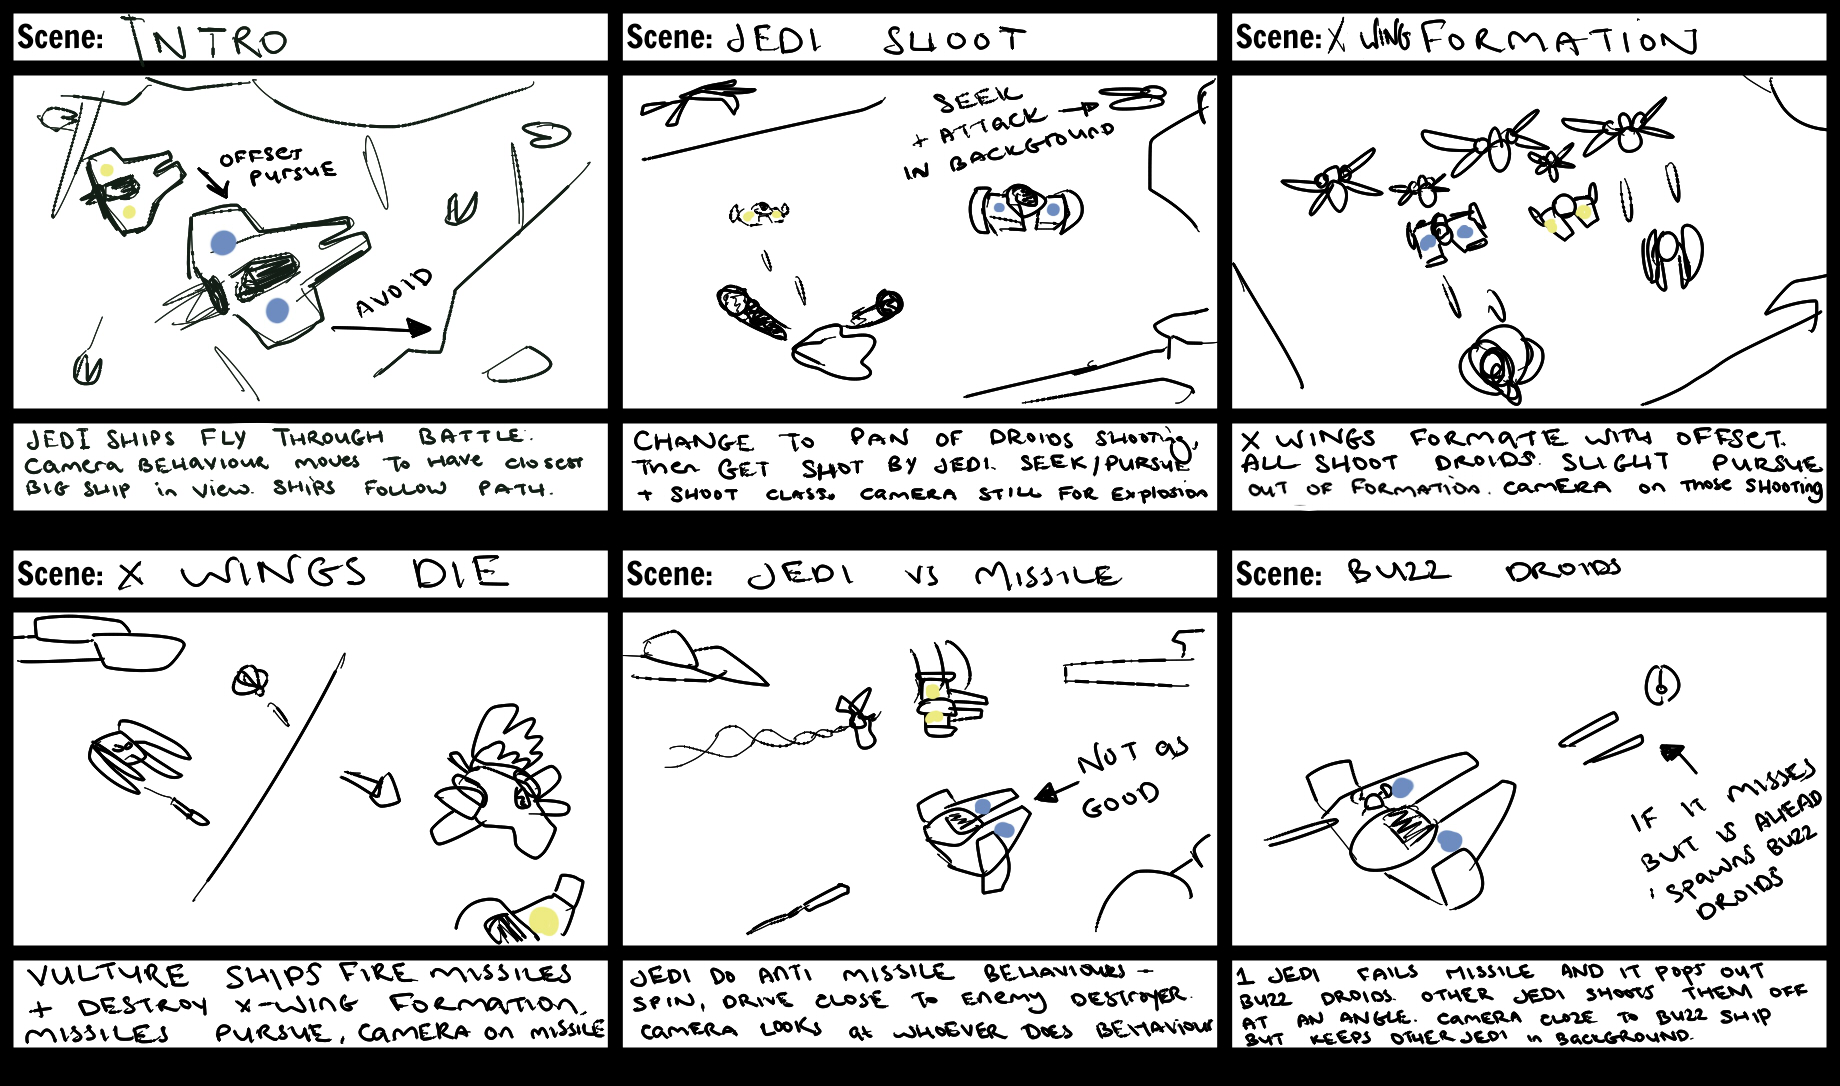 Scene: INTRO
OFFSET
PURSUE
AVOID
JEDI SHIPS FLY THROUGH BATTLE.
CAMERA BEHAVIOUR MOVES TO HAVE CLOSEST
BIG SHIP IN VIEW. SHIPS FOLLOW PATH.
Scene: JEDI SHOOT
SEEK
+ ATTACK
IN BACKGROUND
CHANGE TO PAN OF DROIDS SHOOTING,
THEN GET SHOT BY JEDI. SEEK/PURSUE
+ SHOOT CLASS. CAMERA STILL FOR EXPLOSION
Scene: X WING FORMATION
X WINGS FORMATE WITH OFFSET.
ALL SHOOT DROIDS. SLIGHT PURSUE
OUT OF FORMATION. CAMERA ON THOSE SHOOTING
Scene: X WINGS DIE
VULTURE SHIPS FIRE MISSILES
+ DESTROY X-WING FORMATION.
MISSILES PURSUE, CAMERA ON MISSILE
Scene: JEDI VS MISSILE
NOT AS
GOOD
JEDI DO ANTI MISSILE BEHAVIOURS -
SPIN, DRIVE CLOSE TO ENEMY DESTROYER.
CAMERA LOOKS AT WHOEVER DOES BEHAVIOUR
Scene: BUZZ DROIDS
IF IT MISSES
BUT IS AHEAD
SPAWNS BUZZ
DROIDS
1 JEDI FAILS MISSILE AND IT POPS OUT
BUZZ DROIDS. OTHER JEDI SHOOTS THEM OFF
AT AN ANGLE. CAMERA CLOZE TO BUZZ SHIP
BUT KEEPS OTHER JEDI IN BACKGROUND.